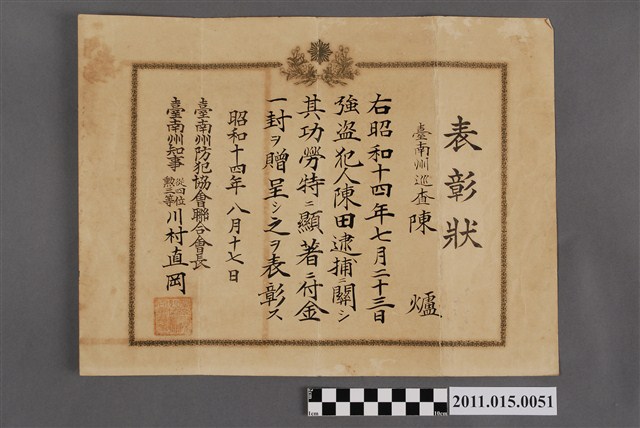 表彰狀
臺南州巡查 陳 爐
右昭和十四年七月二十三日
強盗犯人陳田逮捕ニ關シ
其功勞特ニ顯著ニ付金
一封ヲ贈呈シ之ヲ表彰ス
昭和十四年八月十七日
臺南州防犯協會聯合會長
臺南州知事 從四位勲三等 川村直岡
1cm
10cm
2011.015.0051